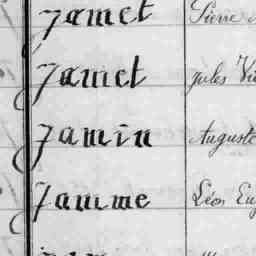 Jamet Pierre
Jamet Jules
Jamin Auguste
Jamme Léon